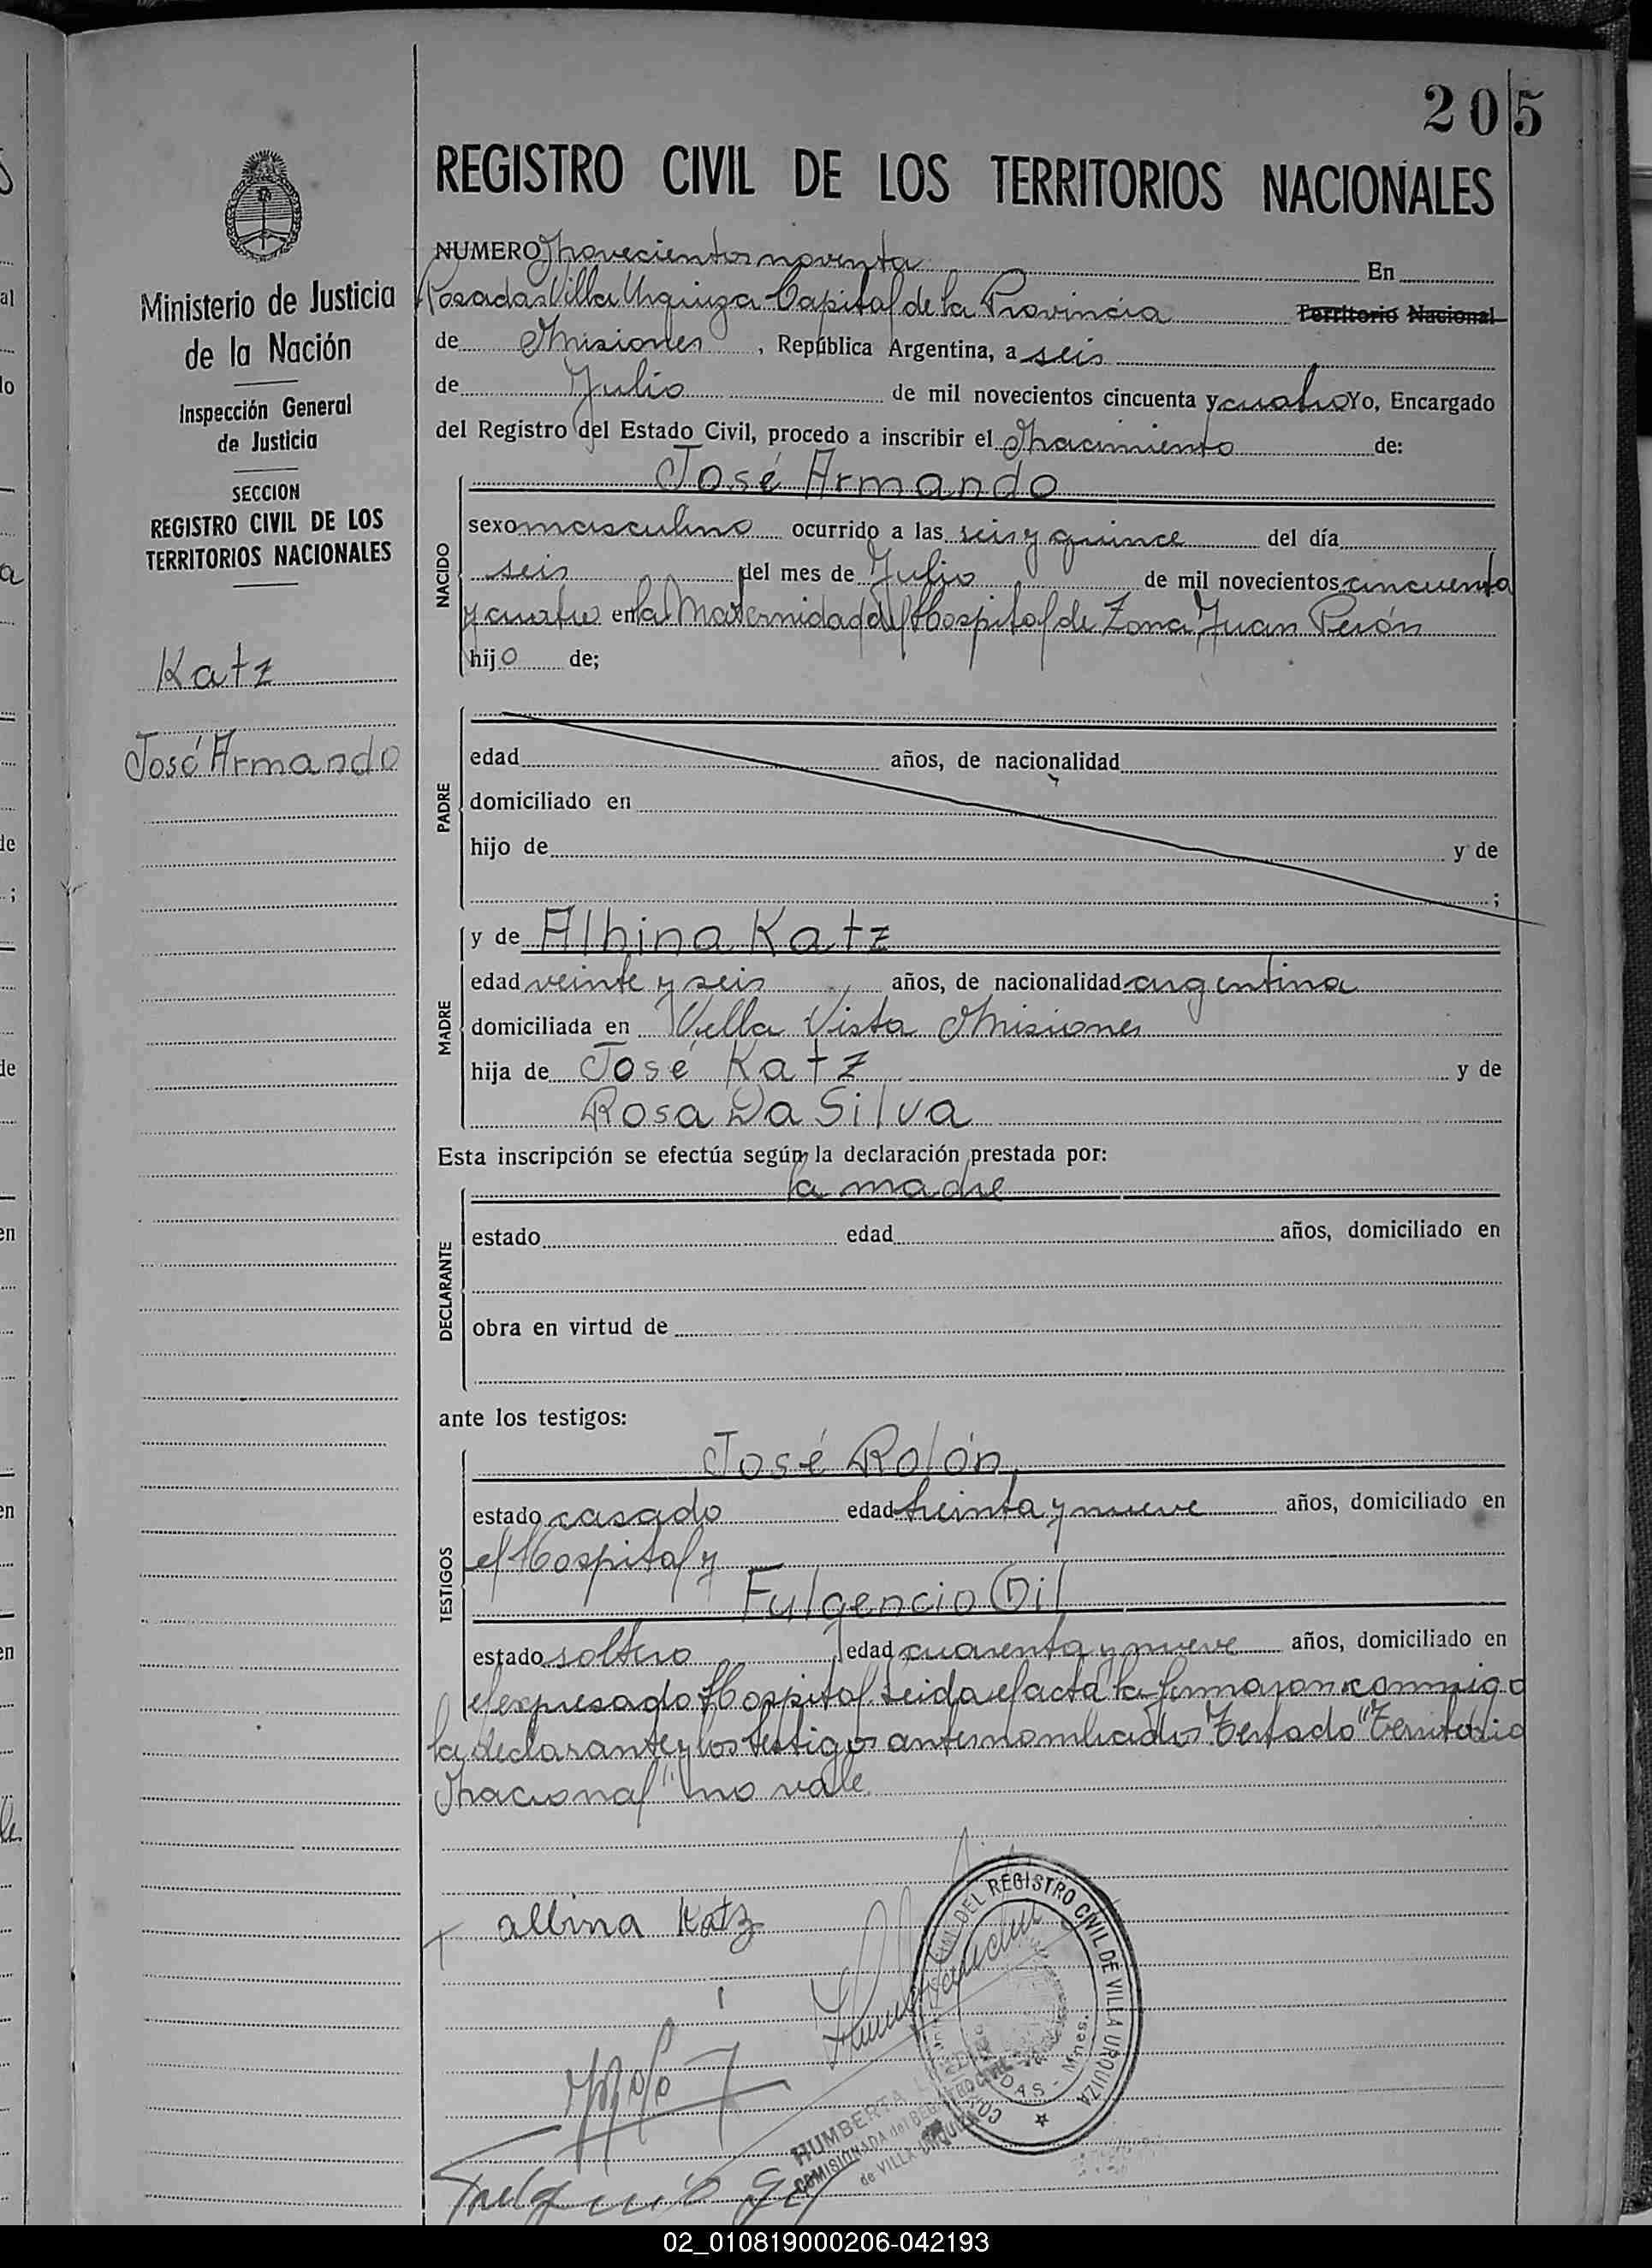 205
REGISTRO CIVIL DE LOS TERRITORIOS NACIONALES
Ministerio de Justicia
de la Nación
Inspección General
de Justicia
SECCION
REGISTRO CIVIL DE LOS
TERRITORIOS NACIONALES
Katz
José Armando
NUMERO Novecientos noventa En
Posadas Villa Urquiza Capital de la Provincia Territorio Nacional
de Misiones, República Argentina, a seis
de Julio de mil novecientos cincuenta y cuatro Yo, Encargado
del Registro del Estado Civil, procedo a inscribir el Nacimiento de:
José Armando
NACIDO
sexo masculino ocurrido a las seis y quince del día
seis del mes de Julio de mil novecientos cincuenta
y cuatro en la Maternidad del Hospital de Zona Juan Perón
hijo de;
PADRE
edad años, de nacionalidad
domiciliado en
hijo de y de
;
MADRE
y de Albina Katz
edad veinte y seis años, de nacionalidad argentina
domiciliada en Vella Vista Misiones
hija de José Katz y de
Rosa Da Silva
Esta inscripción se efectúa según la declaración prestada por:
la madre
DECLARANTE
estado edad años, domiciliado en
obra en virtud de
ante los testigos:
TESTIGOS
José Rolón
estado casado edad treinta y nueve años, domiciliado en
el Hospital y
Fulgencio Gil
estado soltero edad cuarenta y nueve años, domiciliado en
el expresado Hospital Leida el acta la firmaron conmigo
la declarante y los testigos antes nombrados Testado "Territorio
Nacional" no vale
albina Katz
DEL REGISTRO CIVIL DE VILLA URQUIZA
HUMBERTA
COMISIONADA del REGISTRO CIVIL
de VILLA URQUIZA
02_010819000206-042193